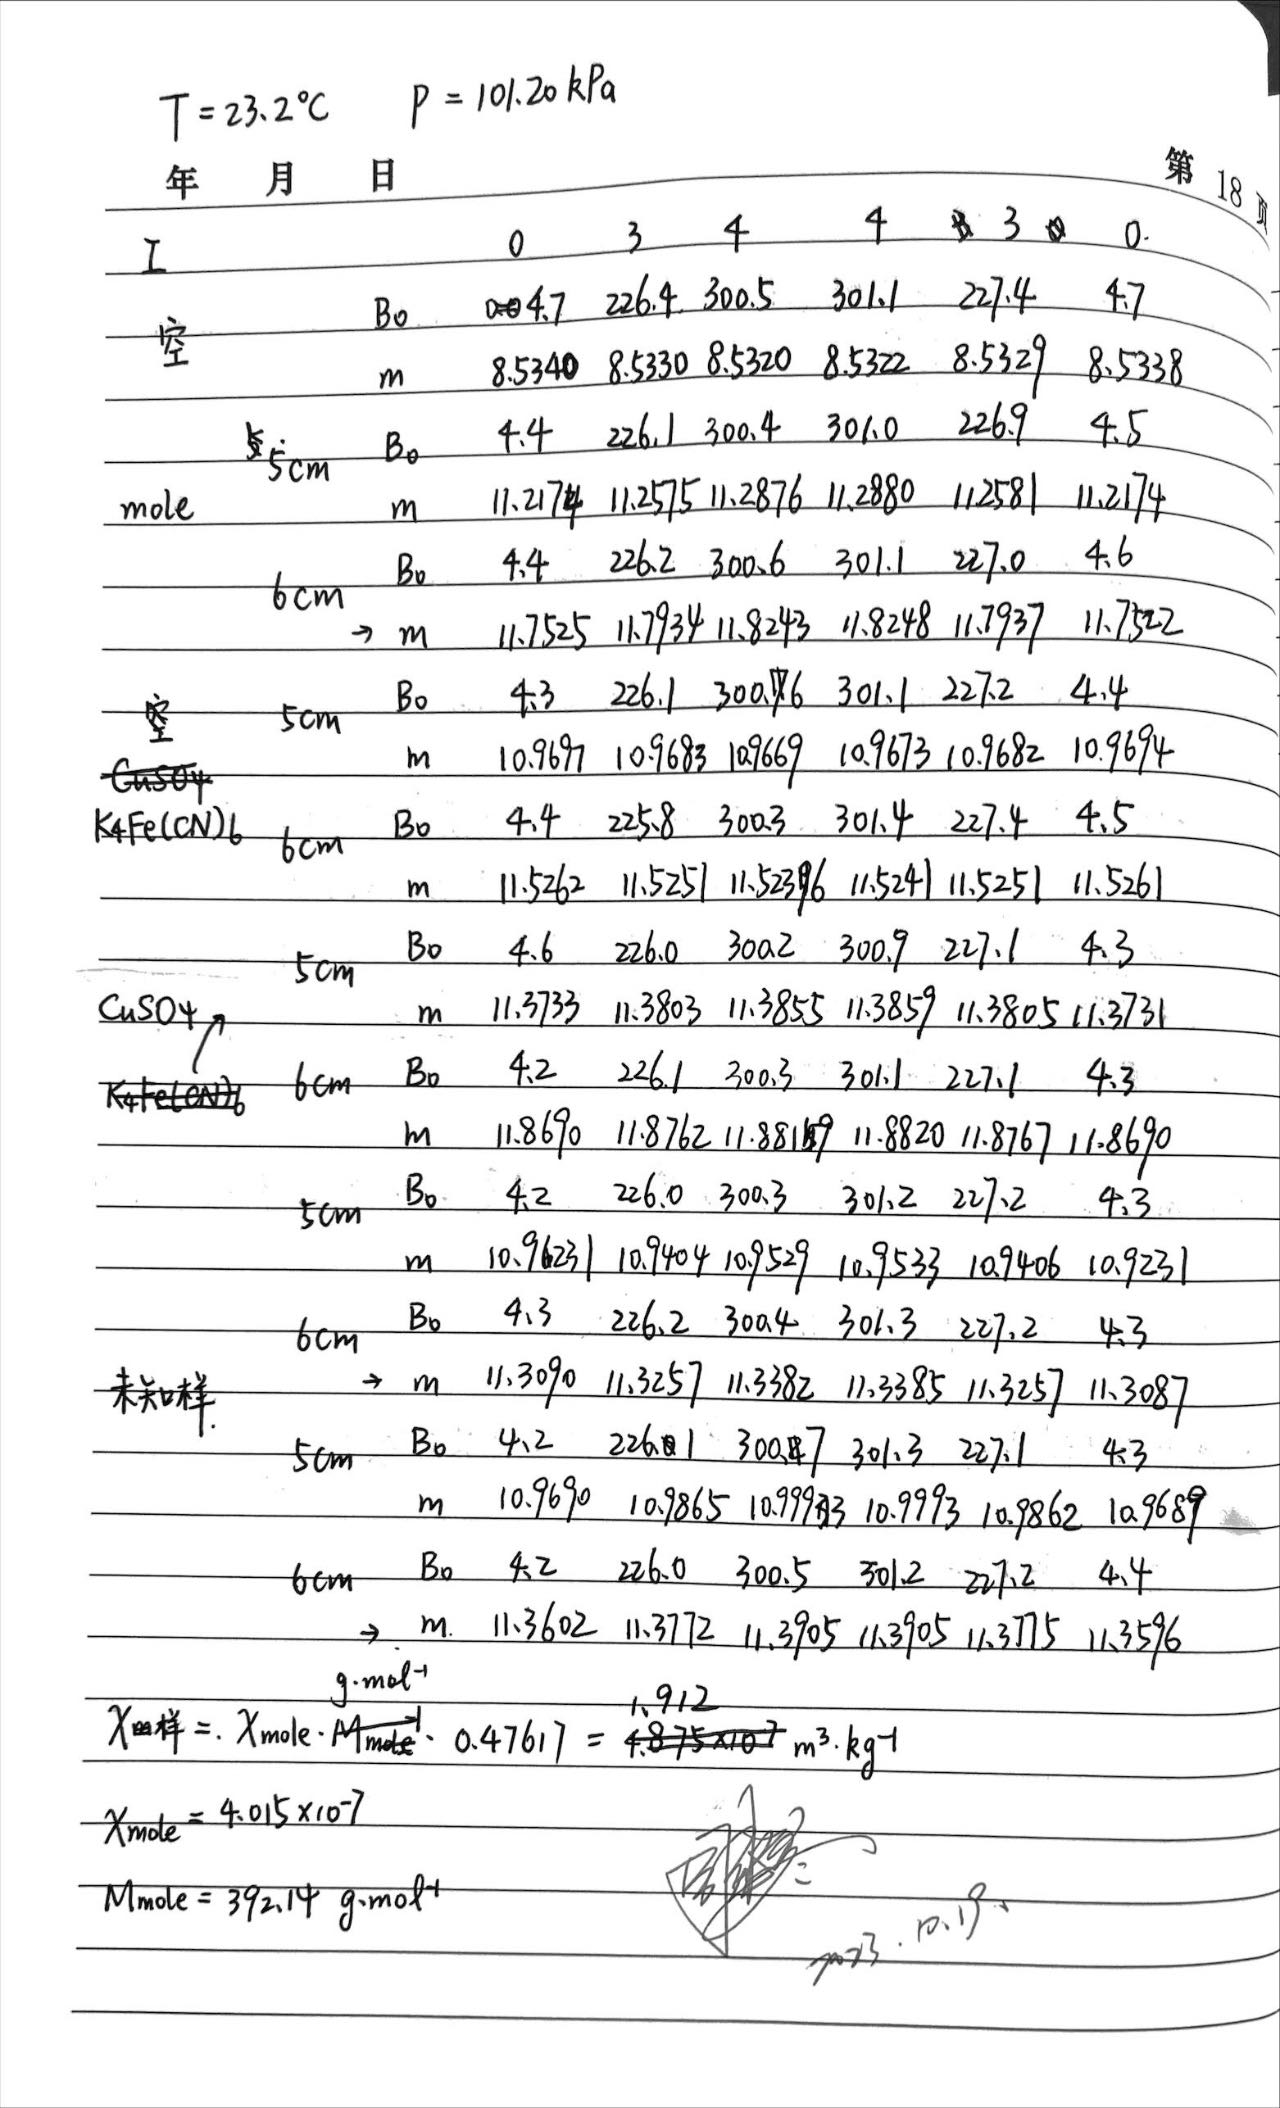 T = 23.2°C P = 101.20 kPa
年 月 日 第 18 页
I 0 3 4 4 3 0.
空 B0 4.7 226.4 300.5 301.1 227.4 4.7
m 8.5340 8.5330 8.5320 8.5322 8.5329 8.5338
5cm B0 4.4 226.1 300.4 301.0 226.9 4.5
mole m 11.2174 11.2575 11.2876 11.2880 11.2581 11.2174
6cm B0 4.4 226.2 300.6 301.1 227.0 4.6
→ m 11.7525 11.7934 11.8243 11.8248 11.7937 11.7522
空 5cm B0 4.3 226.1 300.6 301.1 227.2 4.4
CuSO4 m 10.9697 10.9683 10.9669 10.9673 10.9682 10.9694
K4Fe(CN)6 6cm B0 4.4 225.8 300.3 301.4 227.4 4.5
m 11.5262 11.5251 11.5236 11.5241 11.5251 11.5261
5cm B0 4.6 226.0 300.2 300.9 227.1 4.3
CuSO4 m 11.3733 11.3803 11.3855 11.3859 11.3805 11.3731
K4Fe(CN)6 6cm B0 4.2 226.1 300.3 301.1 227.1 4.3
m 11.8690 11.8762 11.8819 11.8820 11.8767 11.8690
5cm B0 4.2 226.0 300.3 301.2 227.2 4.3
m 10.9231 10.9404 10.9529 10.9533 10.9406 10.9231
6cm B0 4.3 226.2 300.4 301.3 227.2 4.3
未知样. → m 11.3090 11.3257 11.3382 11.3385 11.3257 11.3087
5cm B0 4.2 226.1 300.7 301.3 227.1 4.3
m 10.9690 10.9865 10.9993 10.9993 10.9862 10.9689
6cm B0 4.2 226.0 300.5 301.2 227.2 4.4
→ m. 11.3602 11.3772 11.3905 11.3905 11.3775 11.3596
g·mol-1 1.912
χ样 =. χmole · Mmole-1 · 0.47617 = 4.875×10-7 m3·kg-1
χmole = 4.015×10-7
Mmole = 392.14 g·mol-1
2023.10.19.